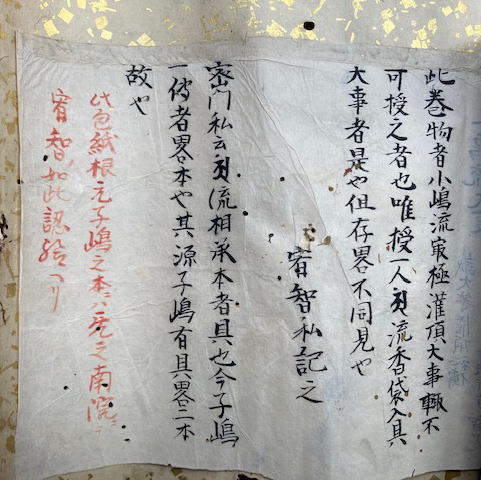 此巻物者小嶋流最極灌頂大事輙不
可授之者也唯授一人 流香袋入具
大事者是也但存畧不同見也
宥智私記之
密門私云 流相承本者具也今子嶋
一傳者畧本也其源子嶋有具畧二本
故也
此包紙根元子嶋之本ニハ 之南院ニテ
宥智如此認給ヘリ